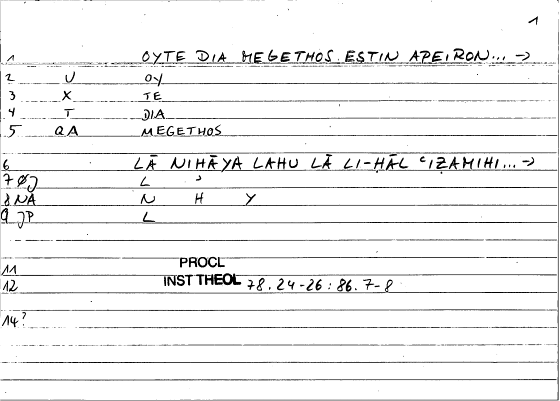 1
1 OYTE DIA MEGETHOS ESTIN APEIRON... →
2 U OY
3 X TE
4 T DIA
5 QA MEGETHOS
6 LĀ NIHĀYA LAHU LĀ LI-ḤĀL ʿIẒAMIHI... →
7 L ʾ
8 NA N H Y
9 JP L
11 PROCL
12 INST THEOL 78.24-26: 86.7-8
14?